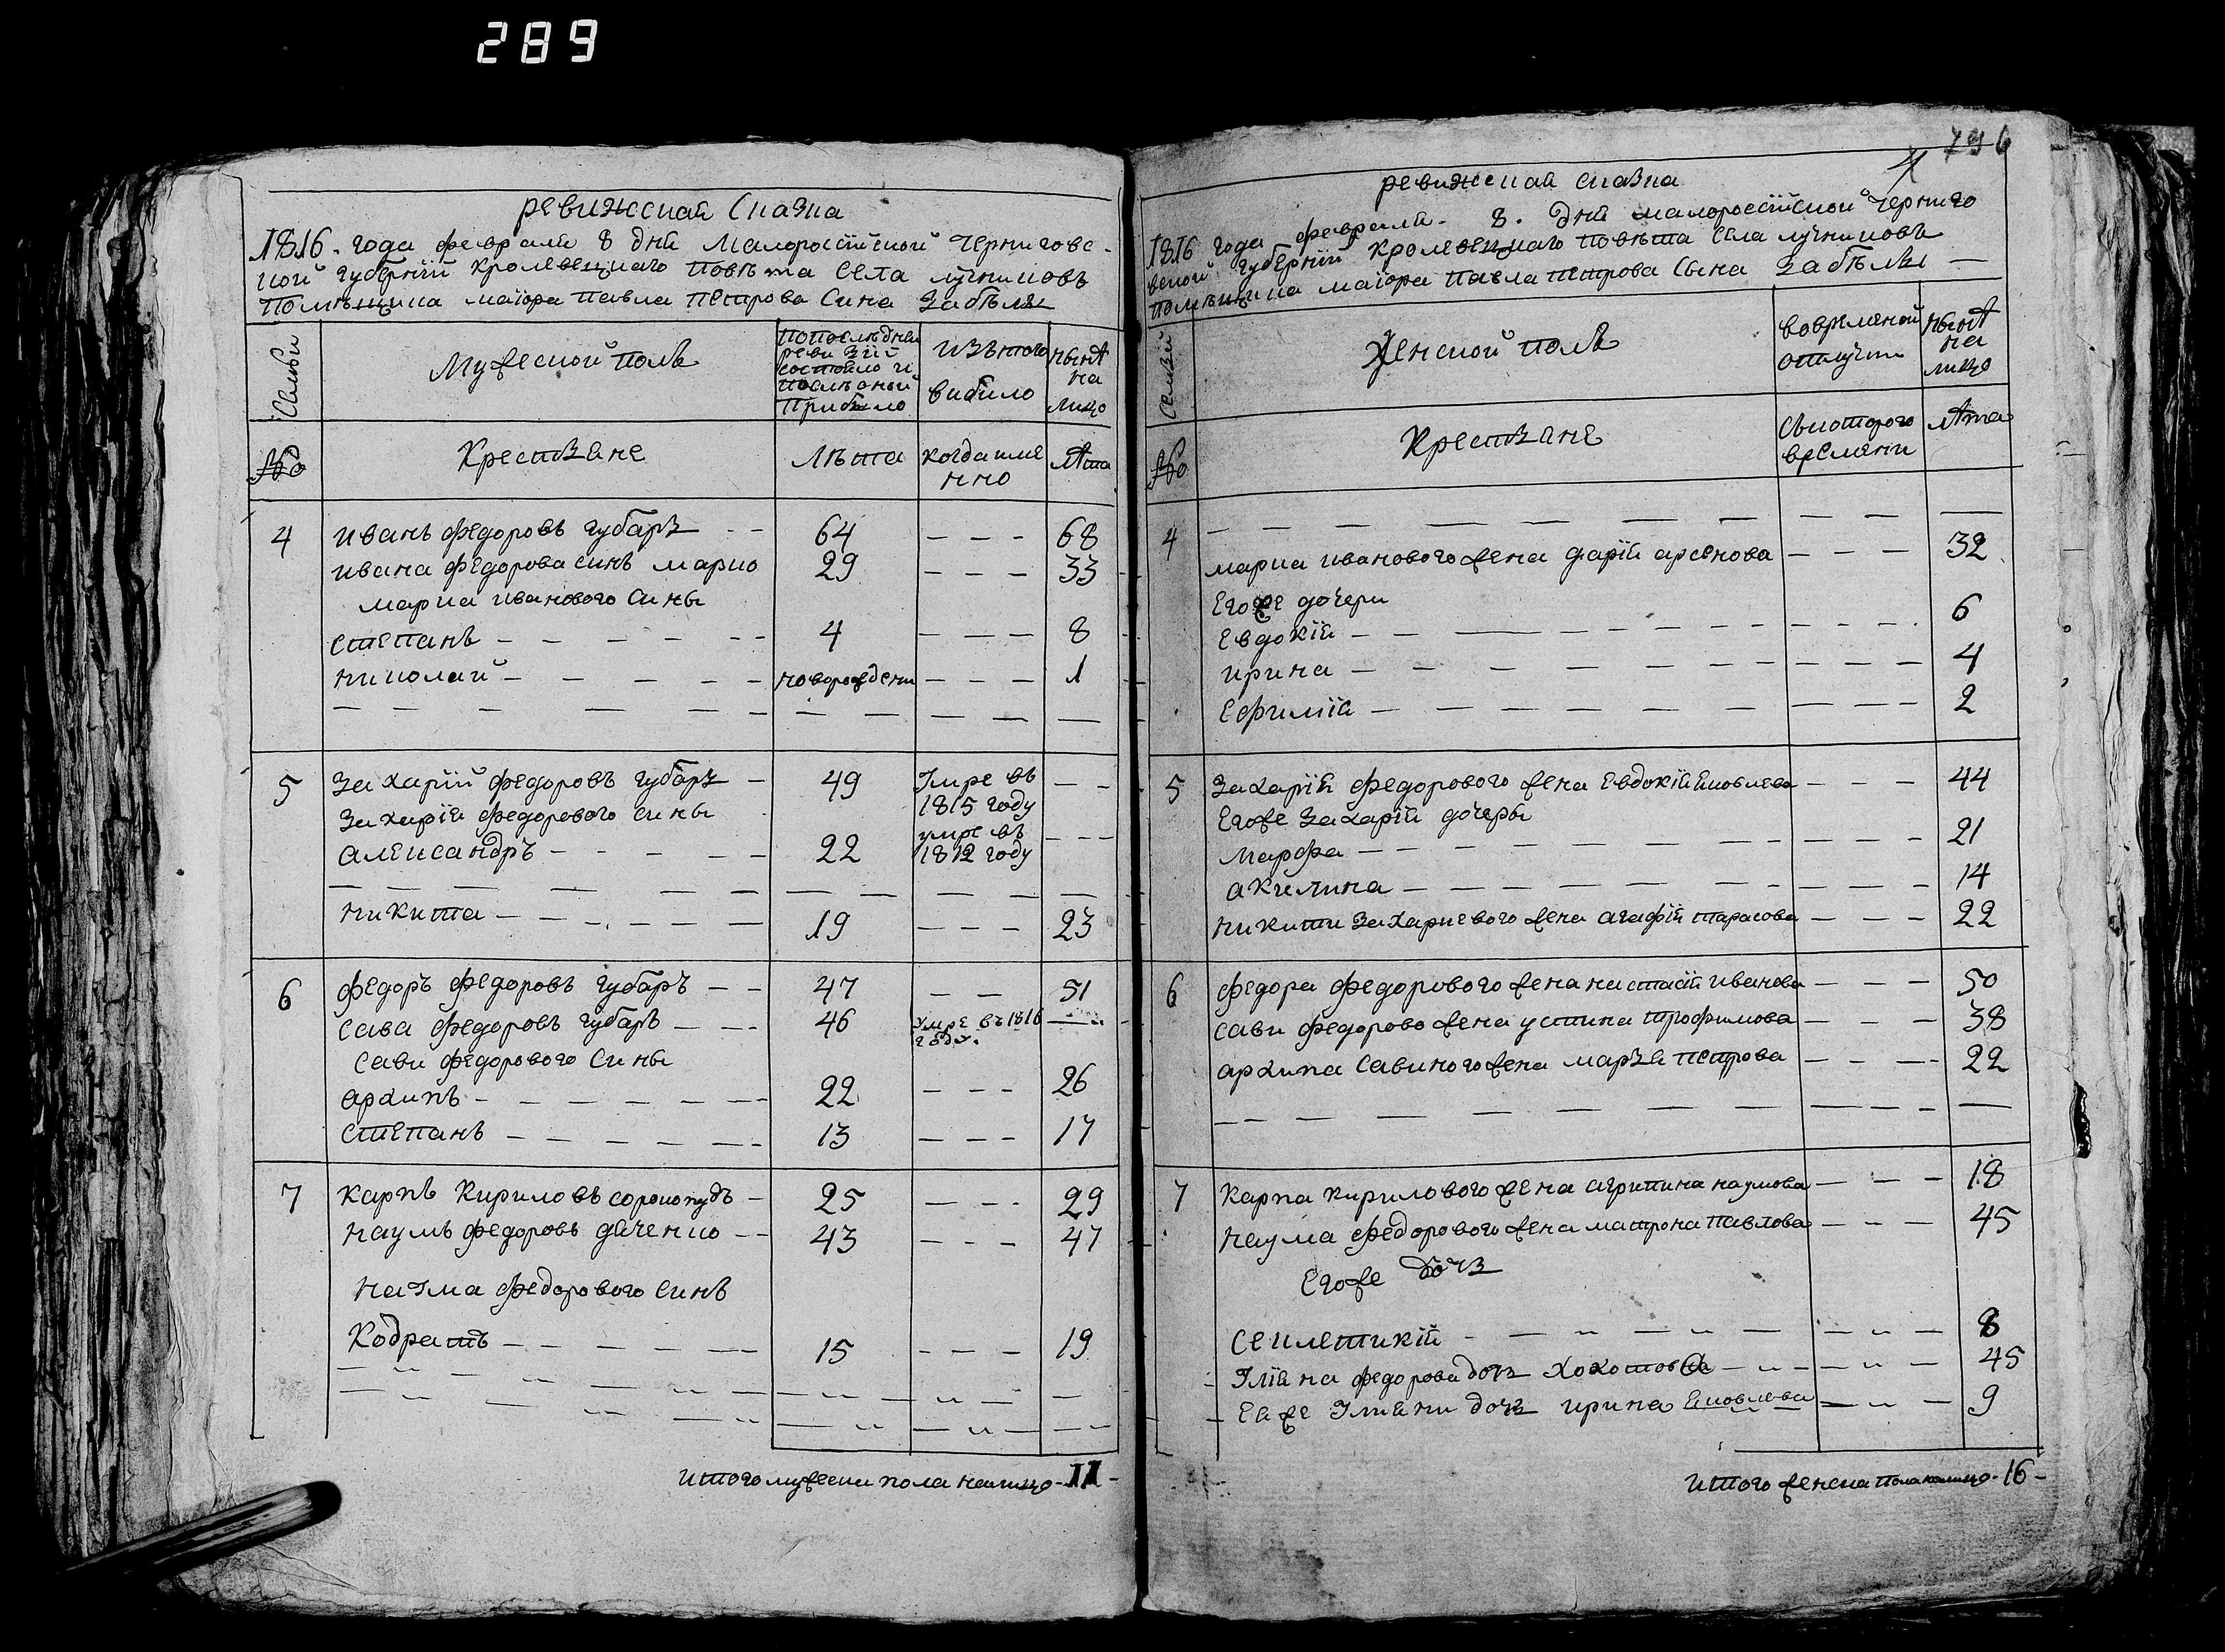 289
ревижская сказка
1816 - года февраля 8 дня Малоросійской Черниговс -
кой губерній Кролевецкаго повѣта Села лучниковъ
помѣщика маіора павла петрова Сина Забѣлы
Семьи
Мужеской полъ
попослѣдней
ревизіи
состояло и
послѣоной
прибыло
изътого
выбило
нынѣ
на
лицо
№
Крестьяне
Лѣта
когда име
нно
лѣта
4 иванъ федоровъ губарь - - 64 - - - 68
ивана федорова синъ марко 29 - - - 33
марка иванового сины
степанъ - - - - - - 4 - - - 8
николай - - - - - новорожденн - - - 1
5 Захарій федоровъ губарь - 49 Умре въ - -
1815 году
Захарія федорового сины
умре въ
александръ - - - - - 22 1812 году - - -
никита - - - - - - 19 - - - 23
6 федоръ федоровъ губаръ - - 47 - - 51
сава федоровъ губаръ - - - 46 Умре въ 1816
году.
сави федорового сины
архипъ - - - - - - - 22 - - - 26
степанъ - - - - - - - 13 - - - 17
7 карпъ кириловъ сорокопудъ - 25 - - - 29
наумъ федоровъ дяченко - - 43 - - - 47
наума федорового синъ
Кодратъ - - - - - - 15 - - - 19
итого мужески пола налицо - 11 -
796
4
ревижская сказка
1816 года февраля - 8 . дня малоросійской Чернигo
вской губерній кролевецкаго повѣта села лучниковъ
помѣщика маіора павла петрова Сына Забѣлы —
Семьи
Женской полъ
вовремяной
отлучки
нынѣ
на
лицо
№
Крестьяне
Скоторого
времяни
лѣта
4
марка иванового жена дарія арсенова - - - 32
Егоже дочери
Евдокія - - - - - 6
ирина - - - - - 4
Ефимія - - - - - 2
5 Захарія федорового жена Евдокія яковлева - - - 44
Егоже Захарія дочеры
Марфа - - - - - 21
акилина - - - - - 14
никити Захариевого жена агафія тарасова - - - 22
6 федора федорового жена настасія иванова - - - 50
сави федорово жена устина трофимова - - - 38
архипа савиного жена марья петрова - - - 22
7 карпа кирилового жена агрипина наумова - - - 18
наума федорового жена матрона павлова - - - 45
Егоже дочь
Секлетикія - - - - - 8
Уліяна федорова дочь Хохотова - - - 45
Еяже Улияни дочь ирина яковлева - - - 9
итого женска пола налицо - 16 -